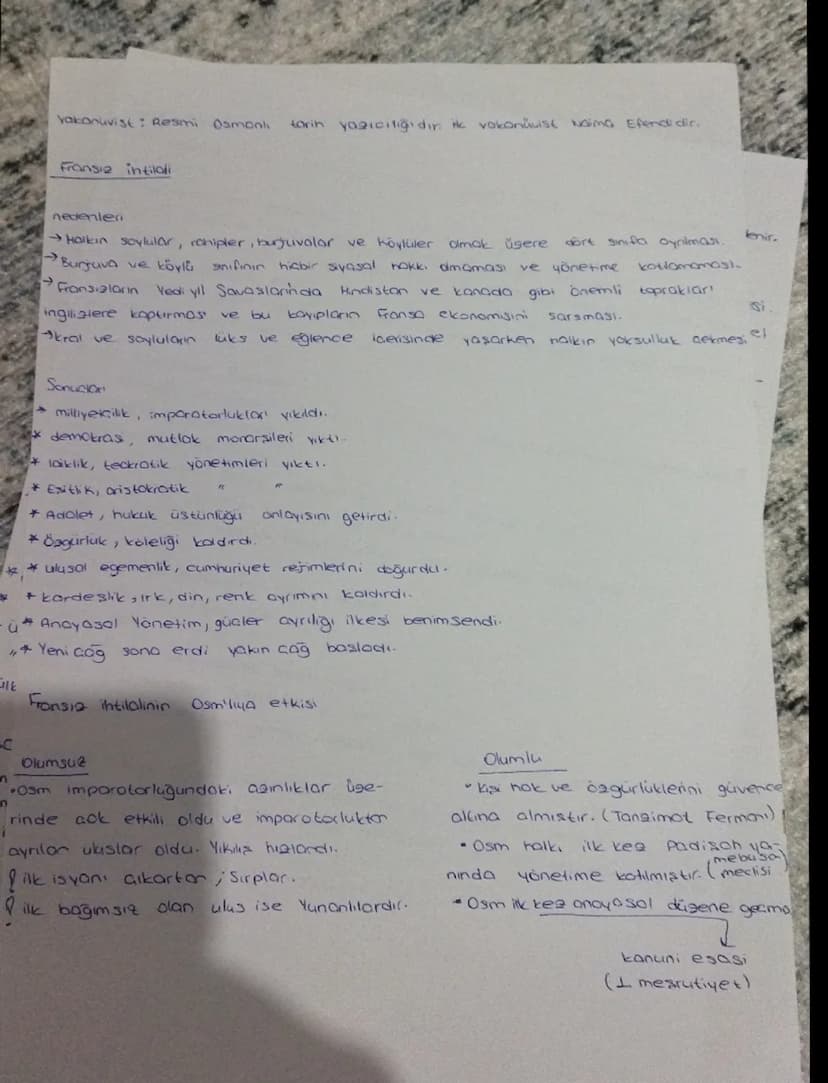 Vakanüvist : Resmi Osmanlı tarih yazıcılığıdır. ilk vakanüvist Naima Efendidir.
Fransız intilali
nedenleri
→ Halkın soylular, rahipler, burjuvalar ve köylüler olmak üzere dört sınıfa ayrılması.
→ Burjuva ve köylü sınıfının hiçbir siyasal hakkı olmaması ve yönetime katılamaması.
→ Fransızların Yedi yıl Savaslarında Hindistan ve Kanada gibi önemli toprakları
ingilizlere kaptırması ve bu kayıpların Fransa ekonomisini sarsması.
→ kral ve soyluların lüks ve eğlence icerisinde yaşarken halkın yoksulluk cekmesi
Sonucları
* milliyetcilik, imparatorlukları yıkıldı.
* demokrasi, mutlak monarsileri yıktı.
* laiklik, teokratik yönetimleri yıktı.
* Esitlik, aristokratik " "
* Adalet, hukuk üstünlüğü anlayısını getirdi.
* Özgürlük, köleliği kaldırdı.
* ulusal egemenlik, cumhuriyet rejimlerini doğurdu.
* kardeslik, ırk, din, renk ayrımını kaldırdı.
* Anayasal Yönetim, gücler ayrılığı ilkesi benimsendi.
* Yeni cağ sona erdi yakın cağ basladı.
Fransız ihtilalinin Osm'lıya etkisi
Olumsuz
• Osm imparatorluğundaki azınlıklar üze-
rinde cok etkili oldu ve imparatorluktan
ayrılan uluslar oldu. Yıkılış hızlandı.
! ilk isyanı cıkartan ; Sırplar.
! ilk bağımsız olan ulus ise Yunanlılardır.
Olumlu
• Kişi hak ve özgürlüklerini güvence
altına almıstır. (Tanzimat Fermanı)
• Osm halkı ilk kez Padisah ya-
nında yönetime katılmıstır. (mebusa meclisi)
• Osm ilk kez anayasal düzene gecme
kanuni esasi
(1 mesrutiyet)